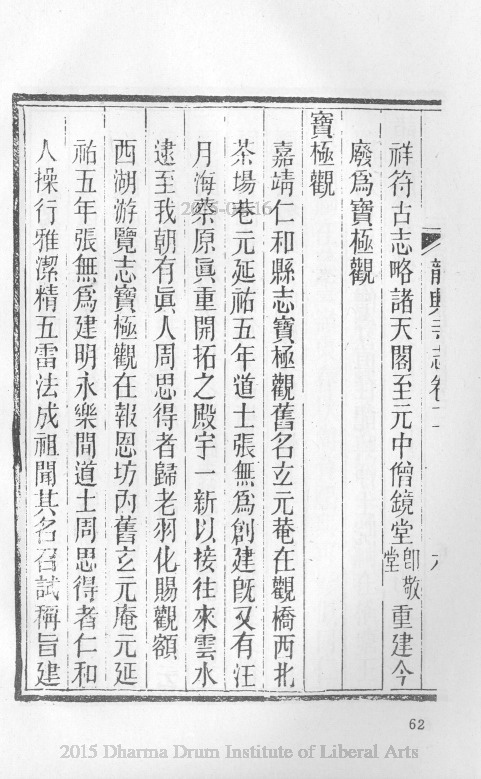 龍興寺志卷二 六
祥符古志略諸天閣至元中僧鏡堂卽敬堂重建今
廢爲寶極觀
寶極觀
嘉靖仁和縣志寶極觀舊名玄元菴在觀橋西北
茶場巷元延祐五年道士張無爲創建旣又有汪
月海蔡原眞重開拓之殿宇一新以接往來雲水
逮至我朝有眞人周思得者歸老羽化賜觀額
西湖游覽志寶極觀在報恩坊內舊玄元庵元延
祐五年張無爲建明永樂間道士周思得者仁和
人操行雅潔精五雷法成祖聞其名召試稱旨建
62
2015 Dharma Drum Institute of Liberal Arts